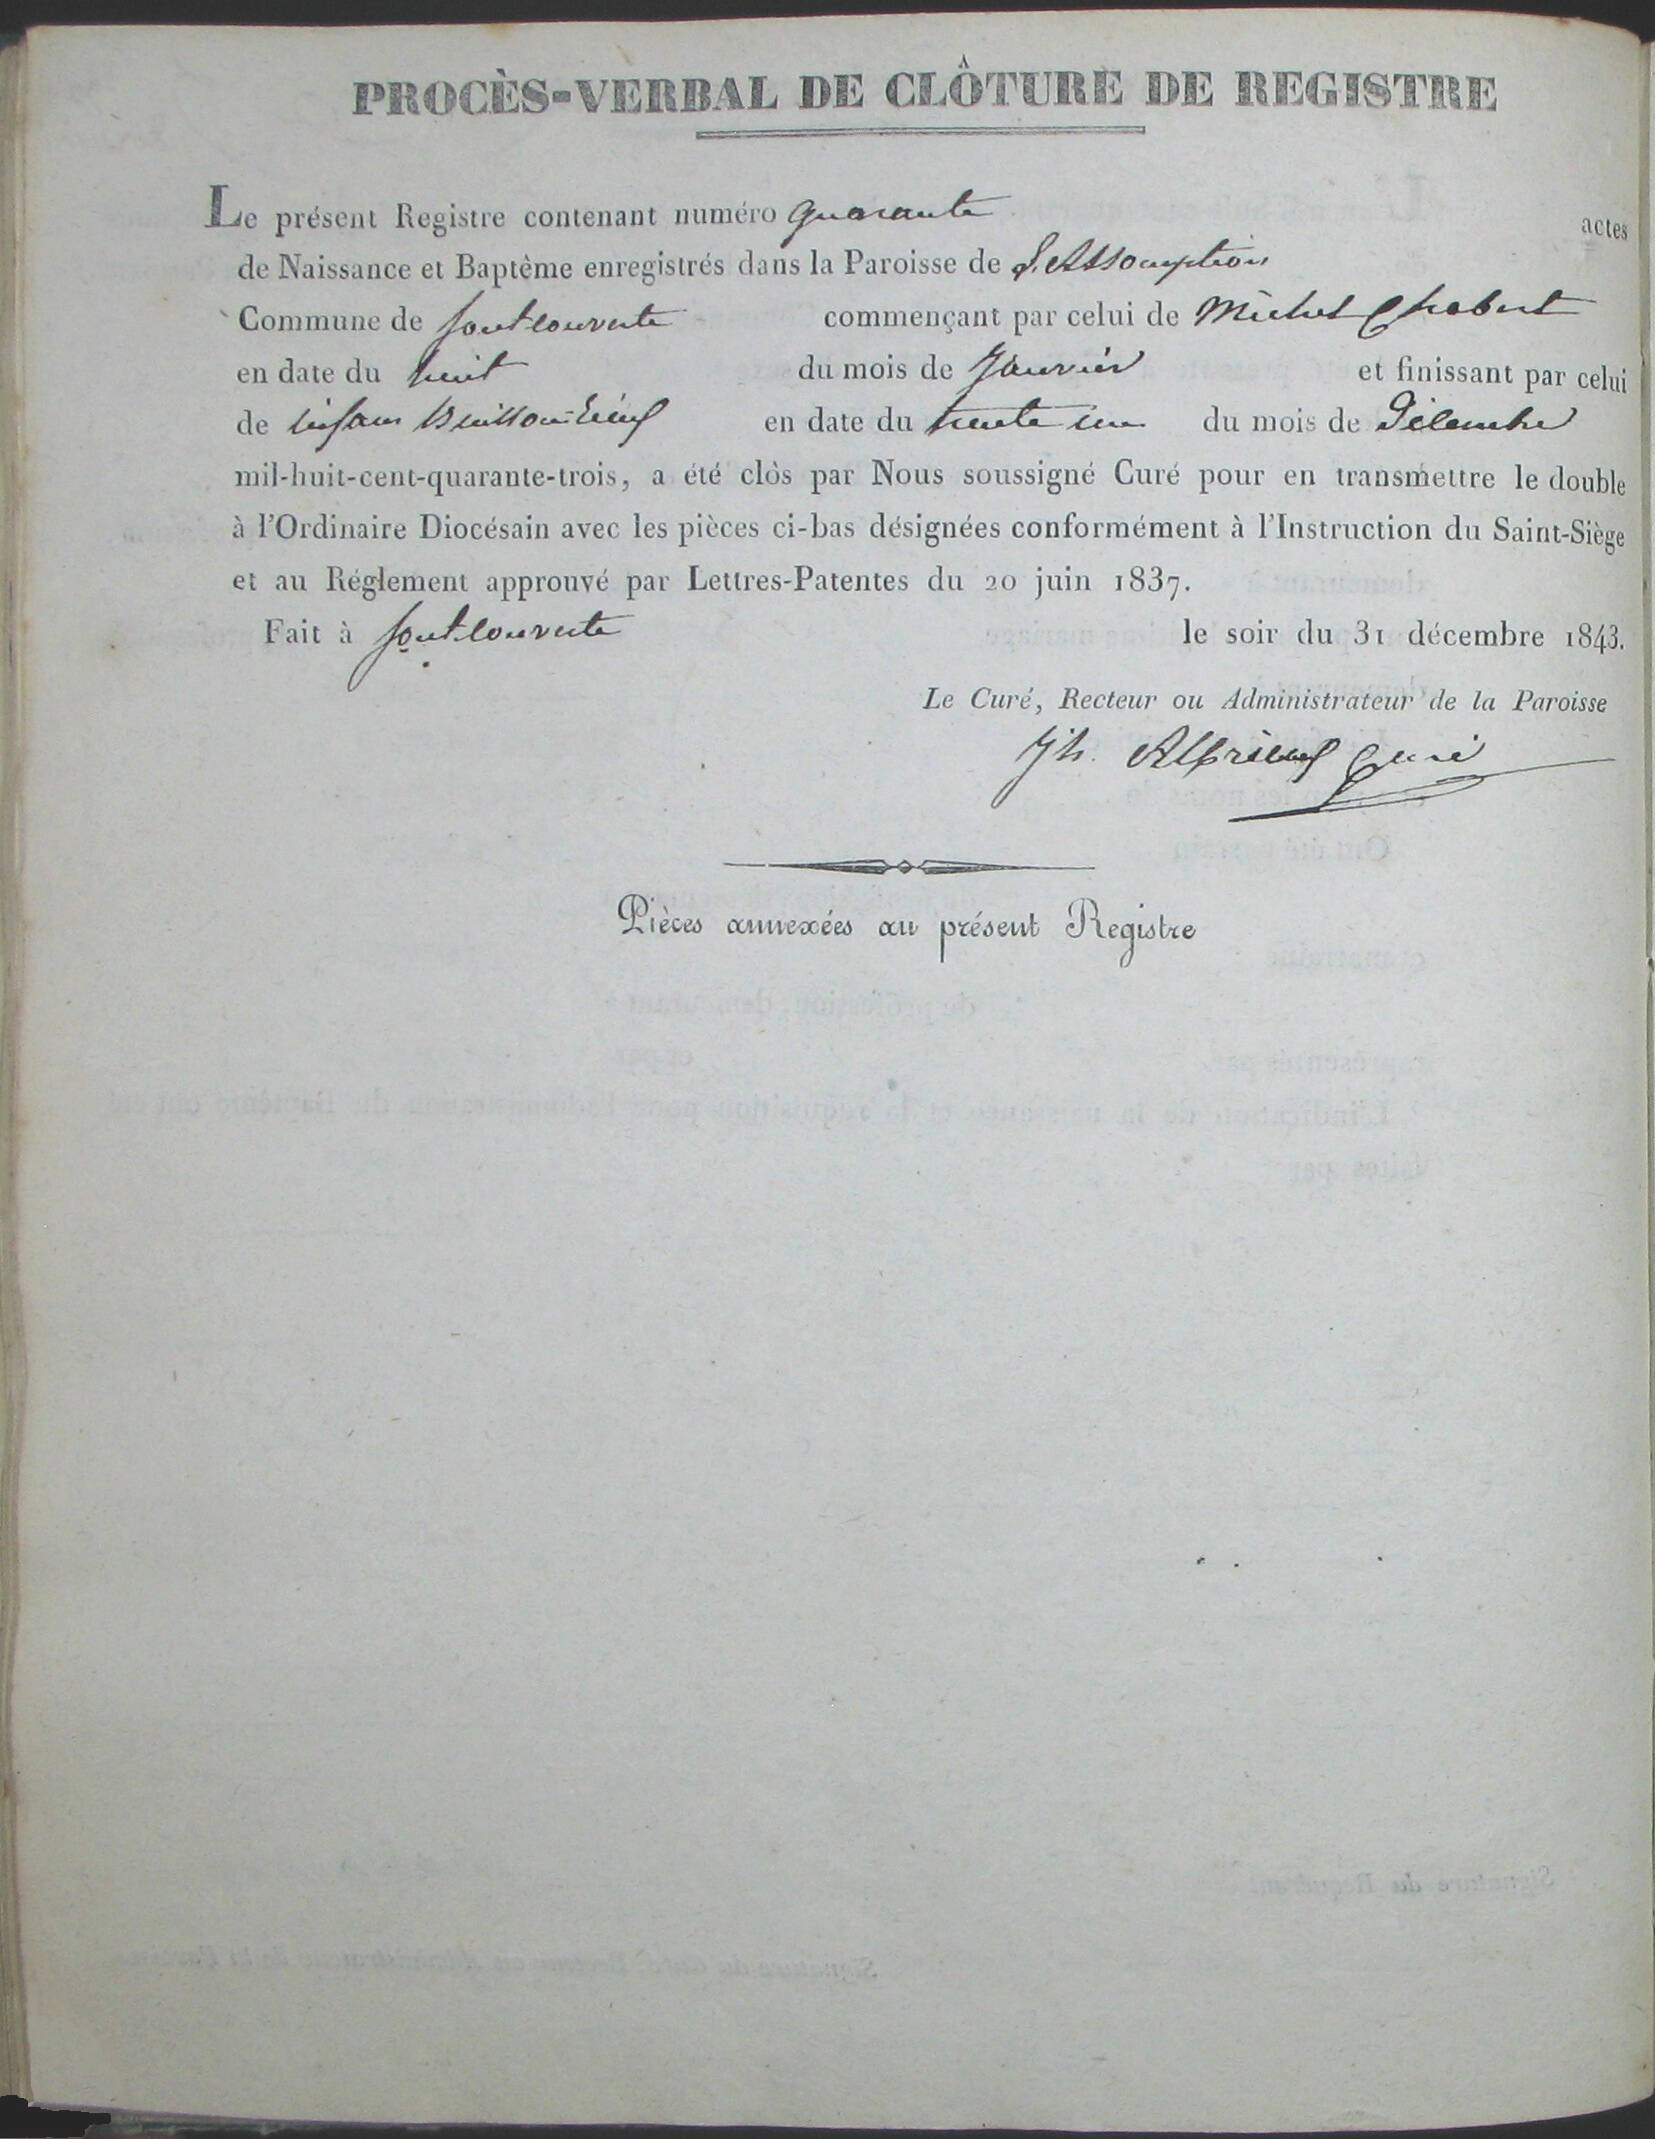 PROCÈS-VERBAL DE CLÔTURE DE REGISTRE
Le présent Registre contenant numéro quarante actes
de Naissance et Baptême enregistrés dans la Paroisse de L'Assomption
Commune de fontcouverte commençant par celui de Michel Chabert
en date du huit du mois de Janvier et finissant par celui
de en date du trente un du mois de Décembre
mil-huit-cent-quarante-trois, a été clòs par Nous soussigné Curé pour en transmettre le double
à l'Ordinaire Diocésain avec les pièces ci-bas désignées conformément à l'Instruction du Saint-Siège
et au Réglement approuvé par Lettres-Patentes du 20 juin 1837.
Fait à fontcouverte le soir du 31 décembre 1843.
Le Curé, Recteur ou Administrateur de la Paroisse
Jh. Albrieux Curé
Pièces annexées au présent Registre